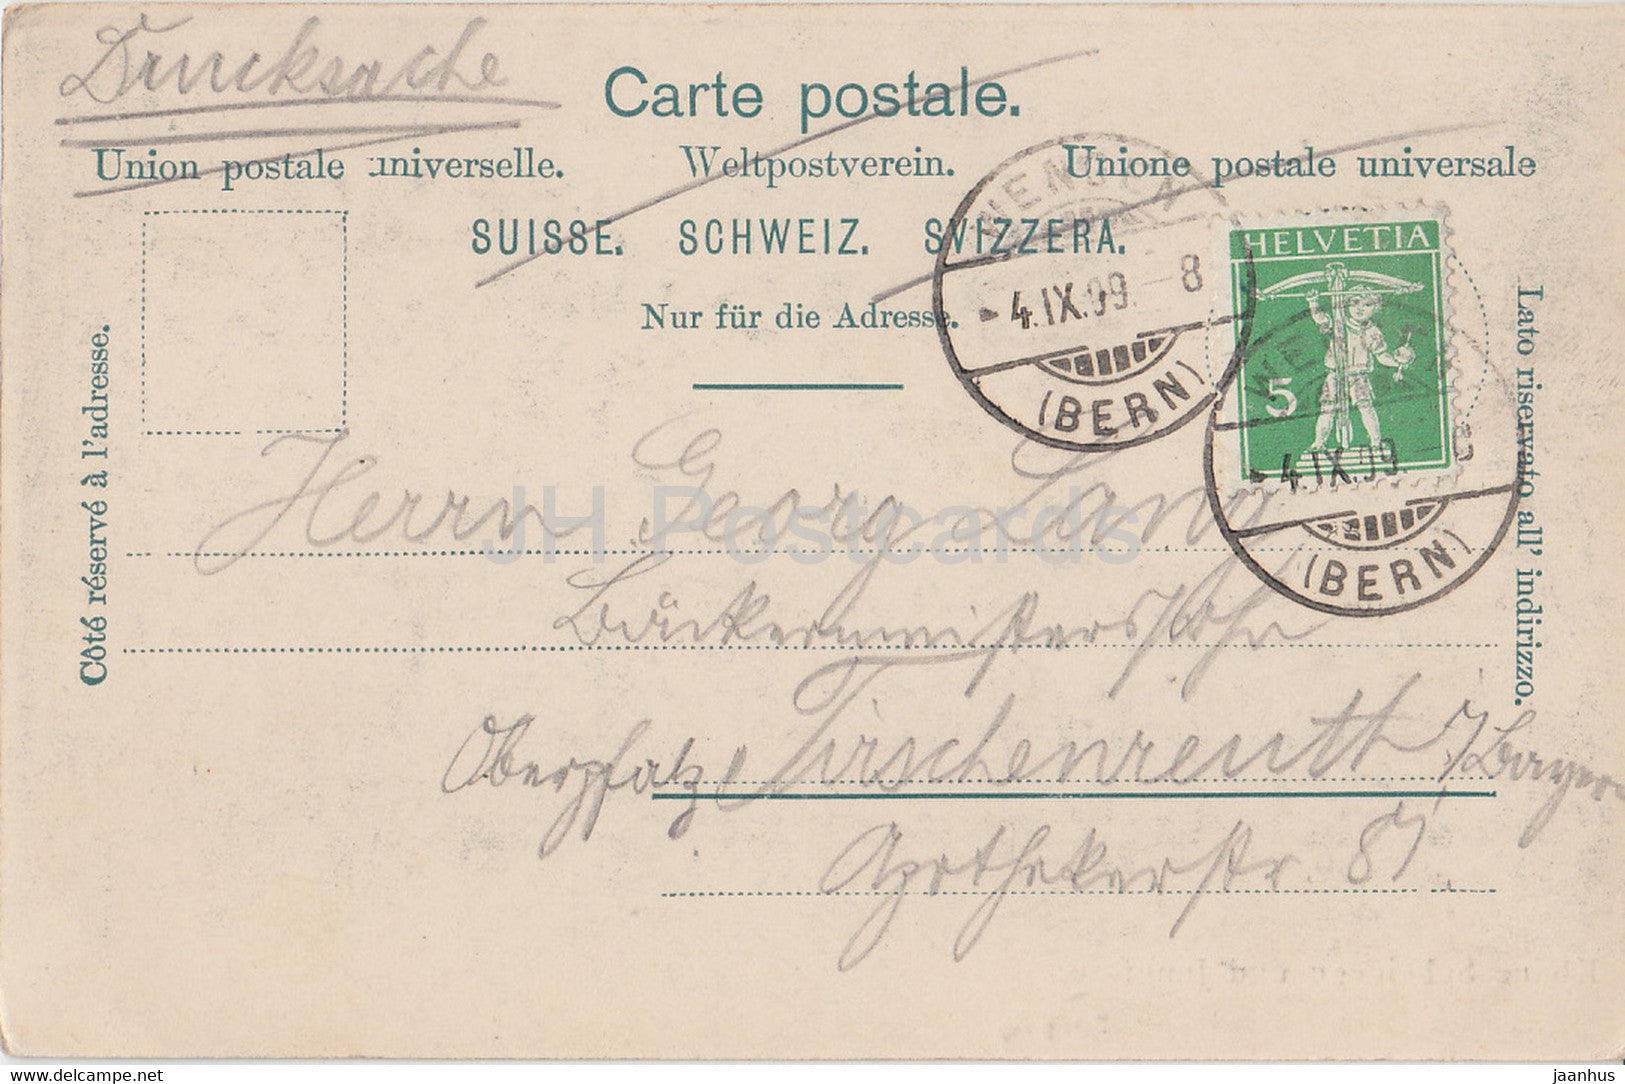 Drucksache
Carte postale.
Union postale universelle. Weltpostverein. Unione postale universale
SUISSE. SCHWEIZ. SVIZZERA.
Nur für die Adresse.
Côté réservé à l'adresse.
Lato riservato all' indirizzo.
HELVETIA
5
WENGEN
4.IX.09.-8
(BERN)
WENGEN
4.IX.09.-8
(BERN)
Herrn Georg Lang
Bäckermeisterssohn
Oberpfalz Tirschenreuth / Bayern
Apothekerstr. 87.
JH Postcards
www.delcampe.net
jaanhus